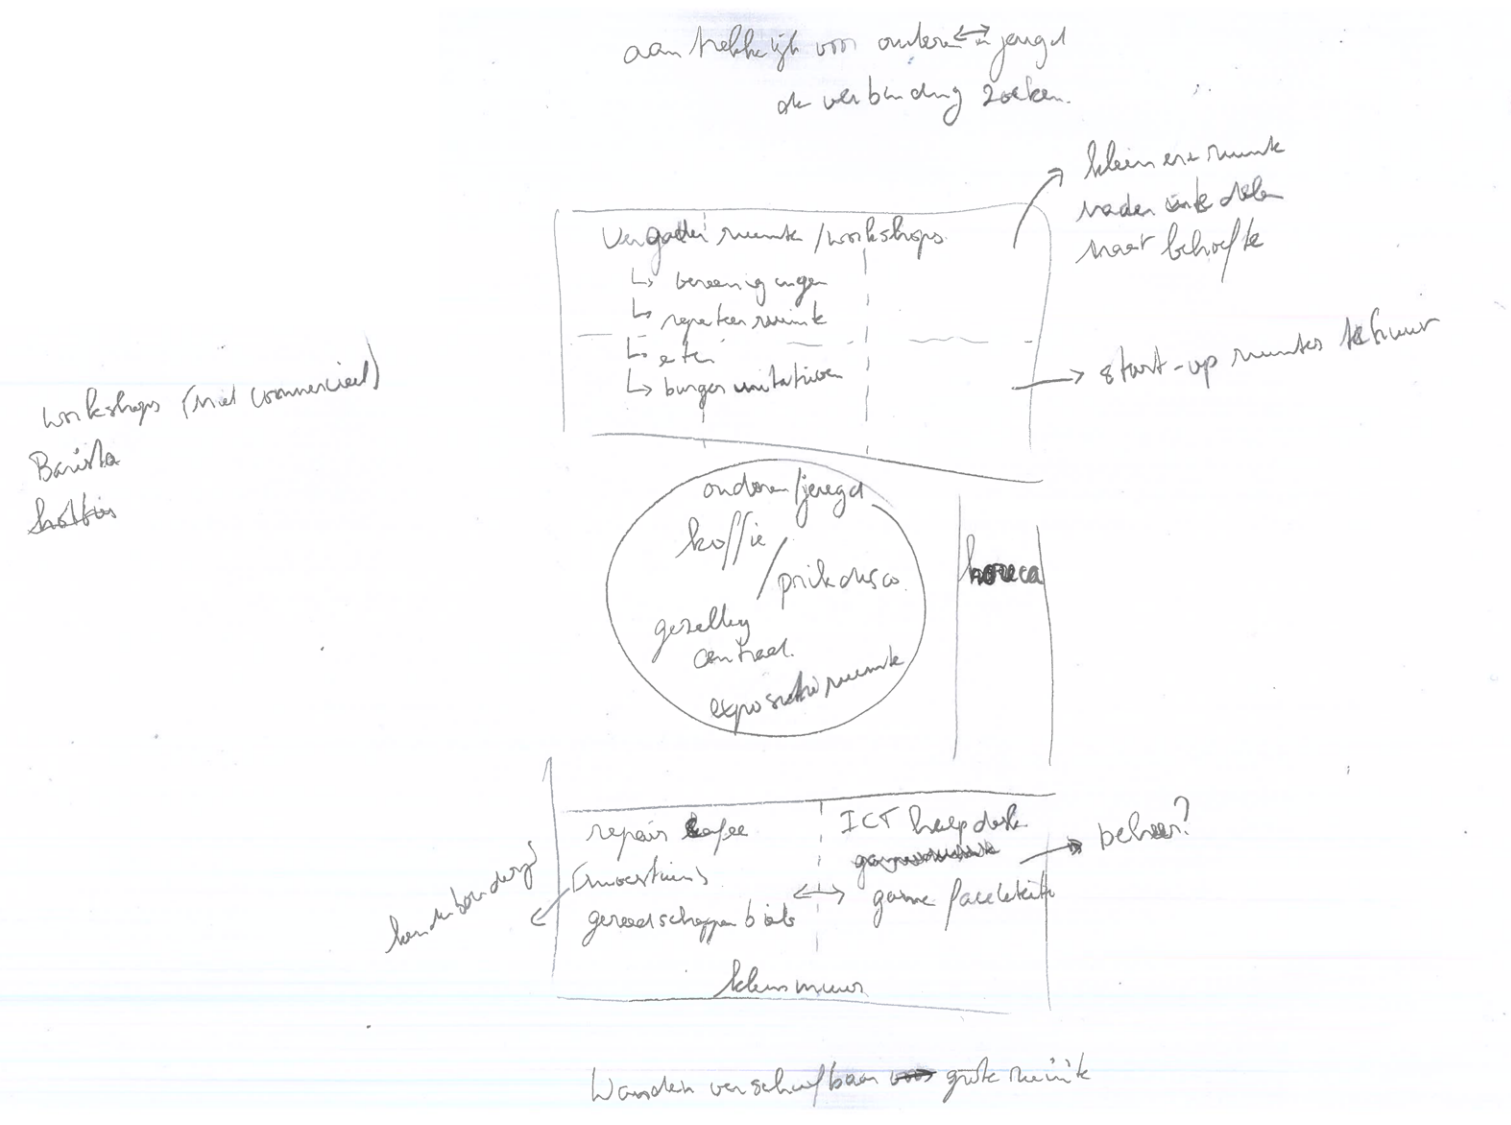 aantrekkelijk voor ouderen ↔ jeugd
verbinding zoeken.
kleinere ruimte
naar behoefte
vergader ruimte / workshops
↳ vereenigingen
↳ repeteer ruimte
↳ etc
↳ burger initiatieven
start-up ruimtes te huur
workshops (niet commercieel)
Barista
ouderen / jeugd
koffie
/ prikdisco
gezellig
centraal.
expositie ruimte
horeca
repair cafee
(moestuin)
gereedschappen bieb
ICT helpdesk
game faciliteit
beheer?
klimmuur
Wanden verschuifbaar grote ruimte